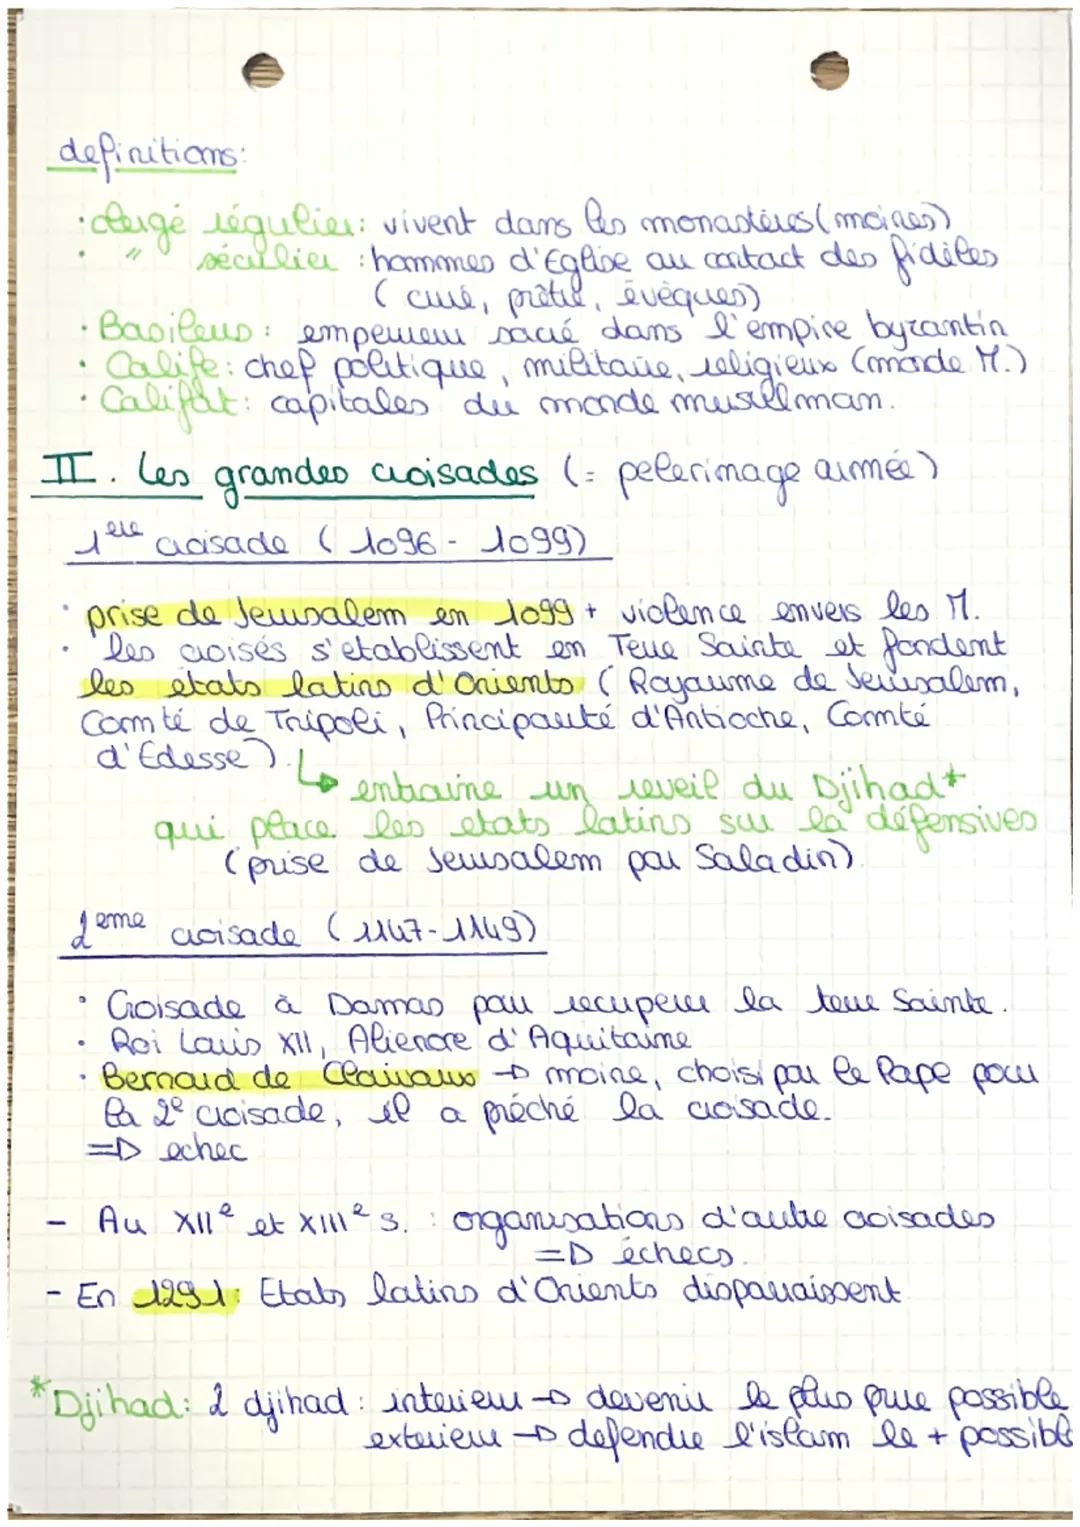 definitions:
· clergé régulier: vivent dans les monastères (moines)
· " séculier : hommes d'Eglise au contact des fidèles
( curé, prêtre, évêques)
· Basileus : empereur sacré dans l'empire byzantin
· Calife : chef politique, militaire, religieux (monde M.)
· Califat : capitales du monde musulman.
II. les grandes croisades (= pelerinage armée)
1ère croisade ( 1096 - 1099)
· prise de Jerusalem en 1099 + violence envers les M.
· les croisés s'etablissent en Terre Sainte et fondent
les états latins d'Orients ( Royaume de Jerusalem,
Comté de Tripoli, Principauté d'Antioche, Comté
d'Edesse ).
↳ entraine un reveil du Djihad*
qui place les etats latins sur la défensives
(prise de Jerusalem par Saladin).
2eme croisade ( 1147-1149)
· Croisade à Damas pour recuperer la terre Sainte.
· Roi Louis XII, Alienore d'Aquitaine
· Bernard de Clairvaux → moine, choisi par le Pape pour
la 2e croisade, il a prêché la croisade.
=> echec
- Au XIIe et XIIIe s. : organisations d'autre croisades
=> échecs.
- En 1291: Etats latins d'Orients disparaissent
*Djihad: 2 djihad : interieur → devenir le plus pure possible
exterieur → defendre l'islam le + possible